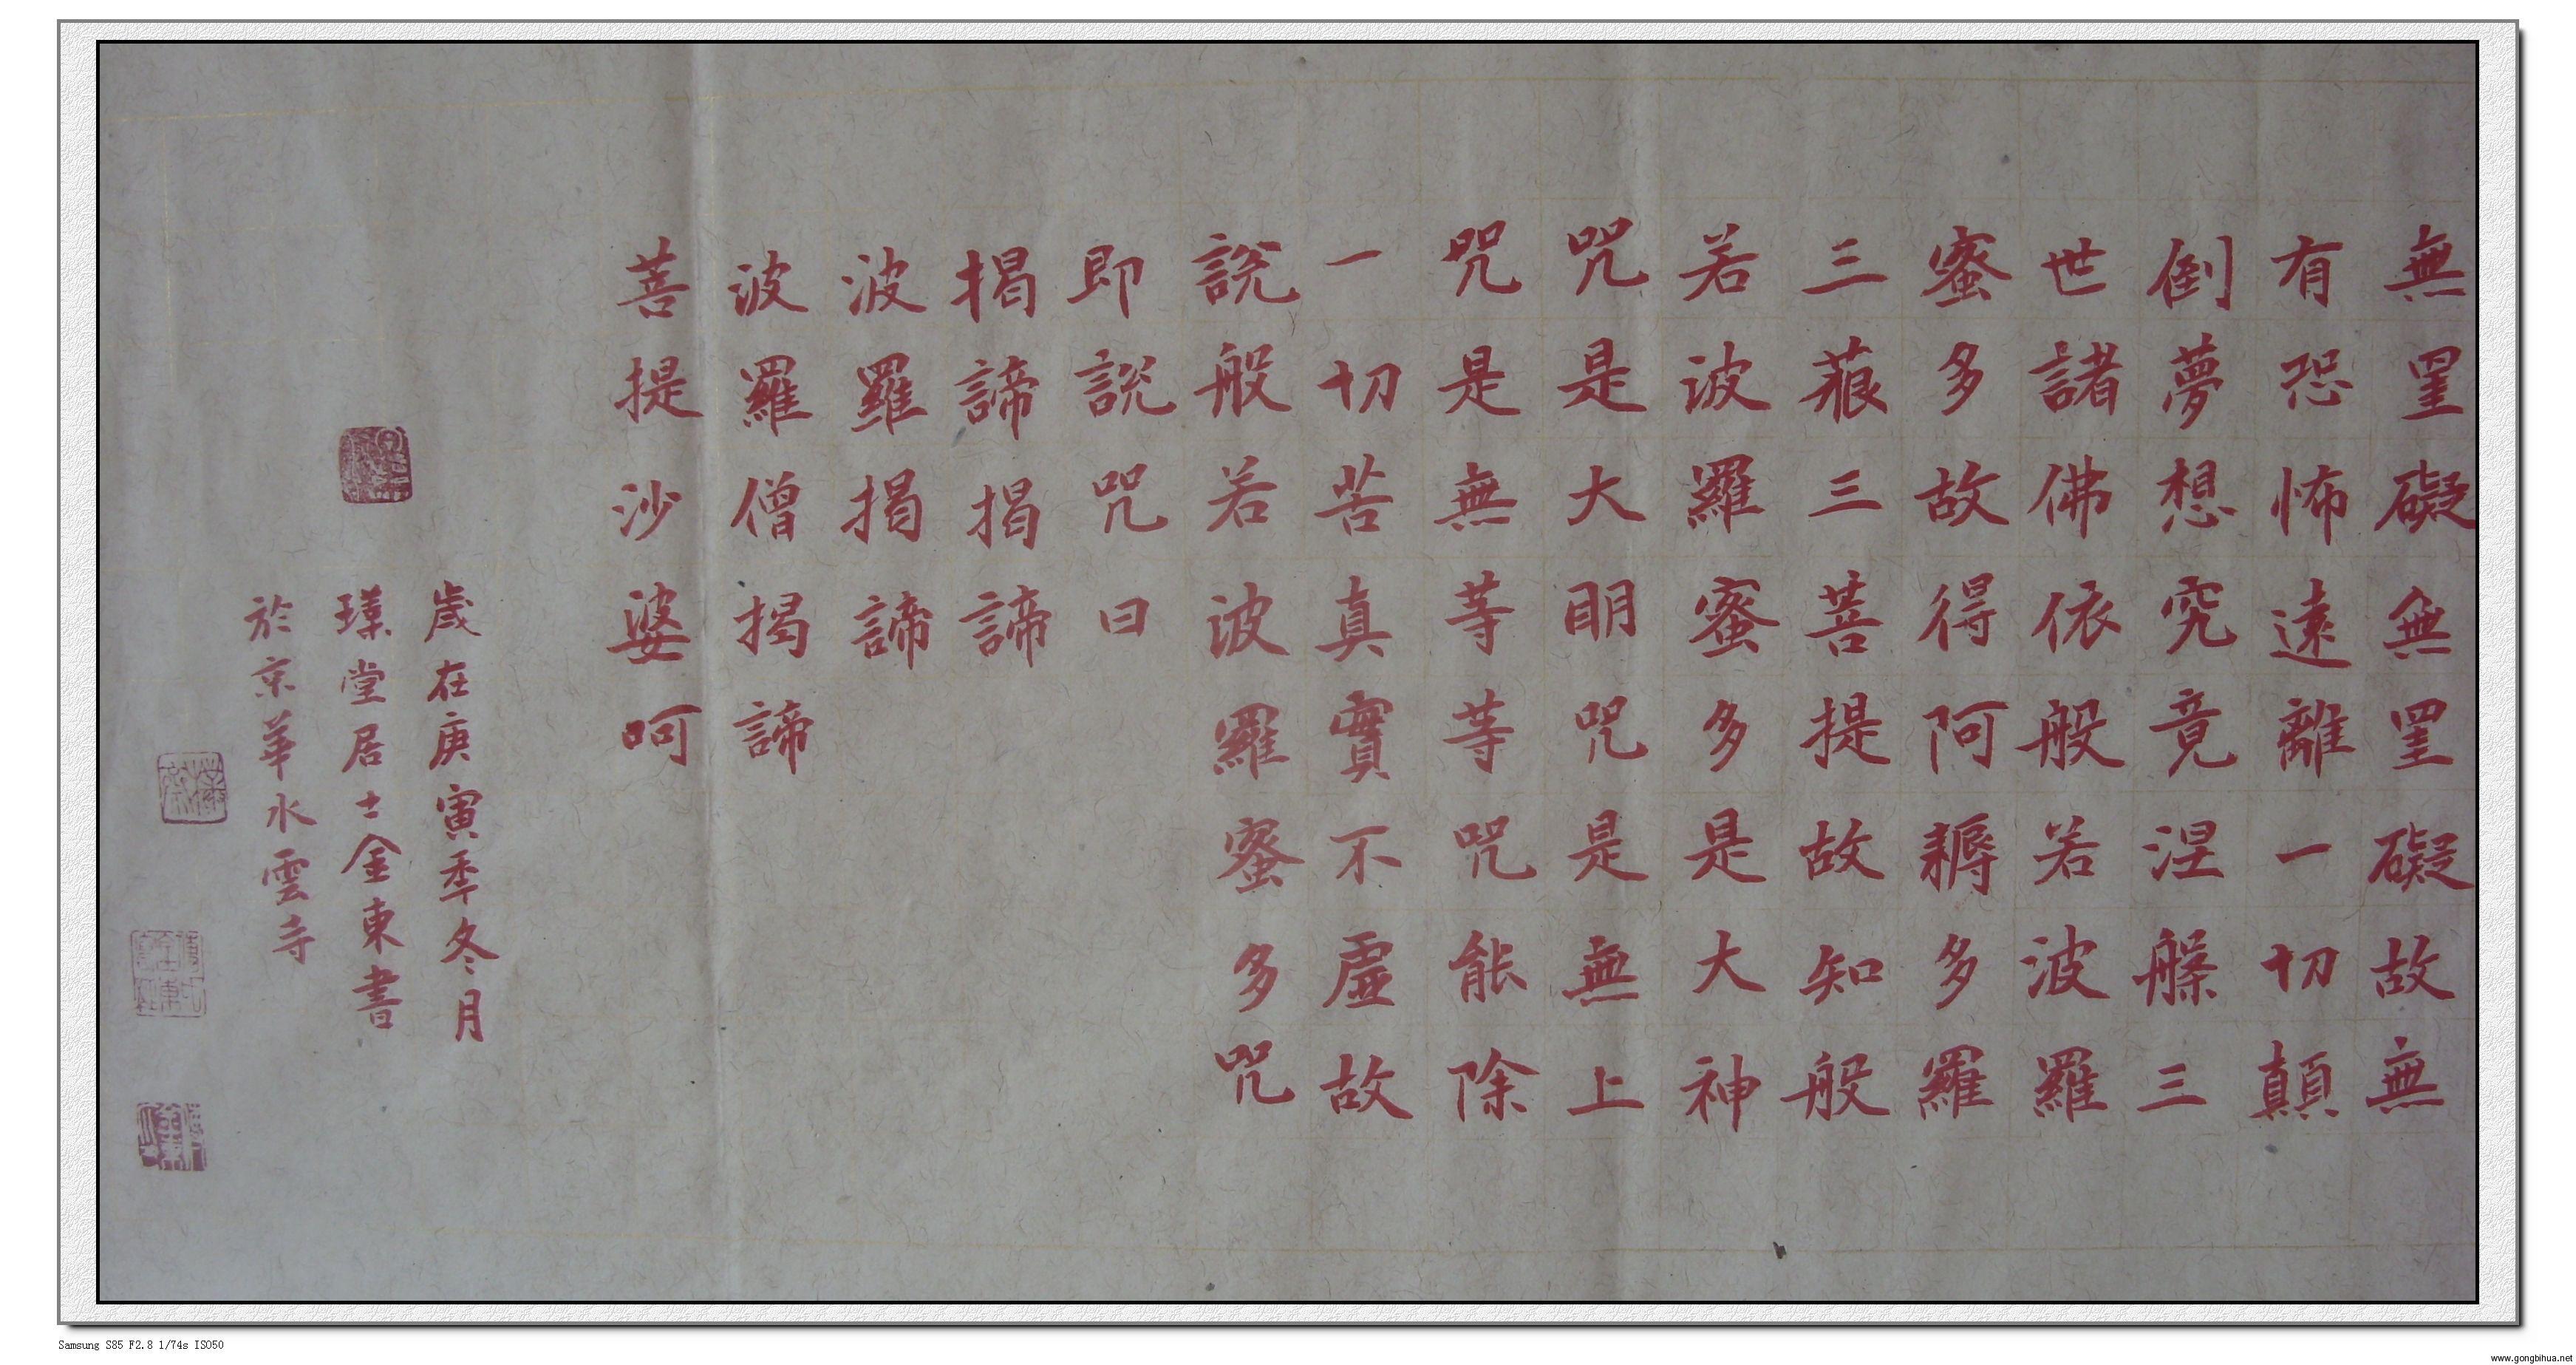 無罣礙無罣礙故無
有恐怖遠離一切顛
倒夢想究竟涅槃三
世諸佛依般若波羅
蜜多故得阿耨多羅
三藐三菩提故知般
若波羅蜜多是大神
咒是大明咒是無上
咒是無等等咒能除
一切苦真實不虛故
說般若波羅蜜多咒
即說咒曰
揭諦揭諦
波羅揭諦
波羅僧揭諦
菩提沙婆呵
歲在庚寅季冬月
璞堂居士金東書
於京華水雲寺
Samsung S85 F2.8 1/74s ISO50
www.gongbihua.net